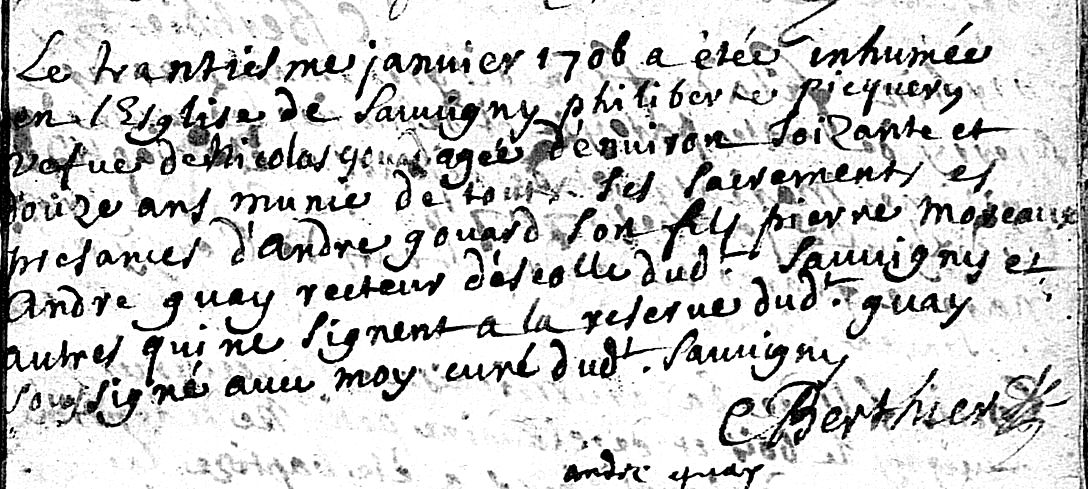 Le trantiesme janvier 1706 a étée inhumée
en l'Esglise de Sauvigny philiberte picquery
vefue de Nicolas gouard agée d'enuiron soizante et
douze ans munie de touts ses sacrements es
presances d'Andre gouard son fils pierre moreaux
Andre guay recteur d'escolle dudt. Sauuigny et
autres qui ne signent a la reserue dudt. guay
soussigné auec moy curé dudt. Sauuigny
C Berthier
andre guay